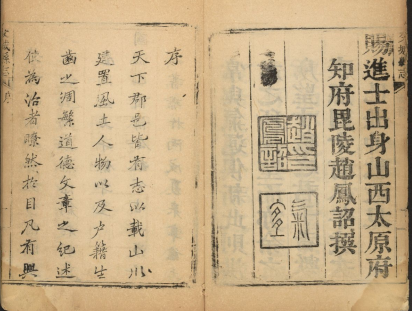 賜進士出身山西太原府
知府毘陵趙鳳詔撰
趙鳳詔印
序
天下郡邑皆有志以載山川
建置風土人物以及户籍生
齒之凋繁道德文章之纪述
使為治者瞭然於目凡有興